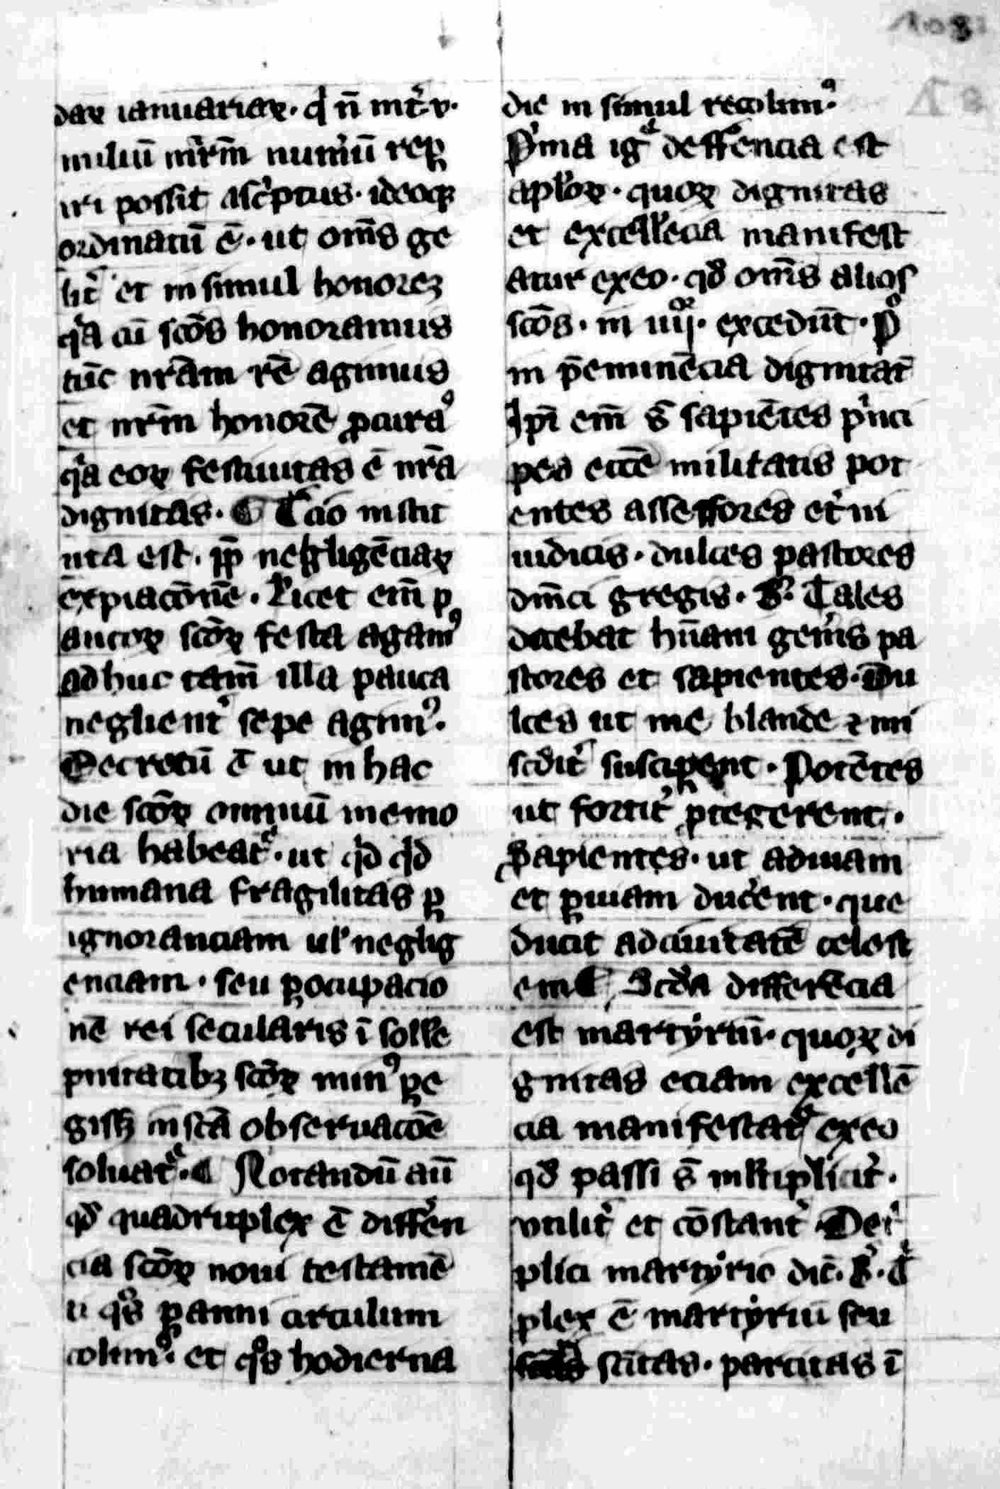 daꝝ ianuariaꝝ · q̇ n̄ int͛ v·
miliū mr̄m nūm͛ū reꝑ
iri possit asc͛ptus · ideoqꝫ
ordinatū ē · ut om̄s ge
lit͛ et in simul honorēꝫ
q͛a cū sc̄os honoramus
tūc nr̄am rē agimus
et nr̄m honorē ꝓcuram᾿
q͛a eoꝝ festiuitas ē nr̄a
dignitas · ¶ Tc̄io instit
uta est · ꝓp̄ negligēciaꝝ
expiacōnē · Licet em̄ p
aucoꝝ sc̄oꝝ festa agam᾿
ad huc tam̄ illa pauca
neglient͛ sepe agim᾿·
Decretū ē ut in hac
die sc̄oꝝ omniū memo
ria habeat͛ · ut q̇d q̇d
humana fragilitas ꝑ
ignoranciam ul᾿ neglig
enciam · seu ꝑocupacio
nē rei secularis ī solle
pnitatibꝫ sc̄oꝝ min᾿ ꝑe
gissꝫ in sc̄a obseruacōe
soluat͛ · ¶ Notandū aū
qd̄ quadruplex ē differ͛en
cia sc̄oꝝ noui testamē
ti q̊s ꝑ anni circulum
colim᾿· et q̊s hodierna
die in simul recolim᾿·
P͛ma ig͛ deffer͛encia est
apl̄oꝝ · quoꝝ dignitas
et excellēcia manifest
atur ex eo · qd̄ om̄s alios
sc̄os · in iiijor · excedūt · p̊
in p̄eminēcia dignitat͛
Ip̄i em̄ s̄ sapiētes p͛nci
pes eccē militātis pot
entes assessores et͛ni
iudicis · dulces pastores
dn̄ici gregis · B͛· Tales
decebat hūam gen͛is pa
stores et sapientes · Du
lces ut me blande ⁊ mi
sc̄dit͛ suscip̱ent · Potētes
ut fortit͛ ꝓtegerent ·
Sapientes · ut ad uiam
et ꝑ uiam duc͛ent · que
ducit ad ciuitatē celest
em ¶ Sc̄da differēcia
est martyrum · quoꝝ di
gnitas eciam excellē
cia manifestat͛ ex eo
qd̄ passi s̄ mltiplicit͛ ·
vtilit͛ et cōstant͛ · De t͛
plici martyrio dic̄ · B͛ · T͛
plex ē martyriū seu
sc̄itas · parcitas ī